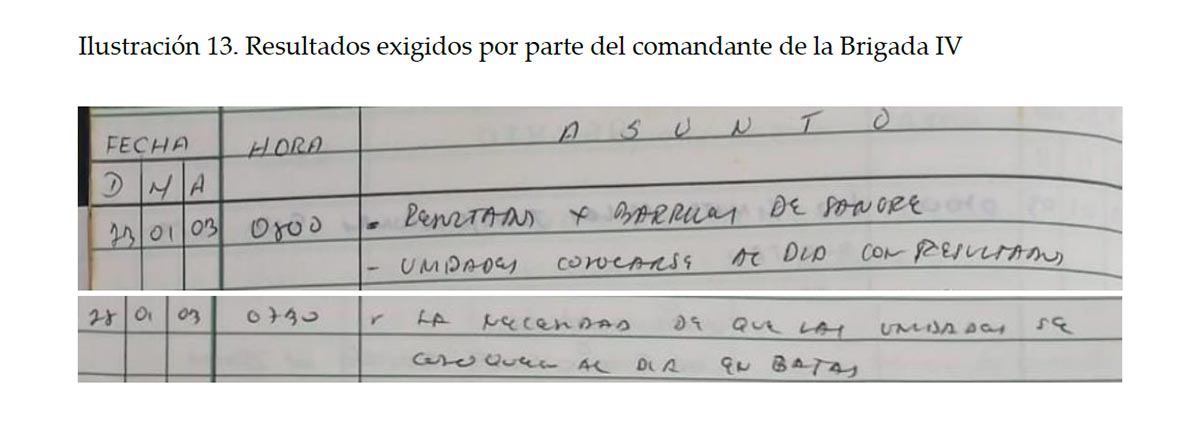 Ilustración 13. Resultados exigidos por parte del comandante de la Brigada IV
FECHA HORA ASUNTO
D M A
23 01 03 0800 - RESULTADOS X BARRILES DE SANGRE
- UNIDADES COLOCARSE AL DIA CON RESULTADOS
28 01 03 0730 - LA NECESIDAD DE QUE LAS UNIDADES SE
COLOQUEN AL DIA EN BAJAS